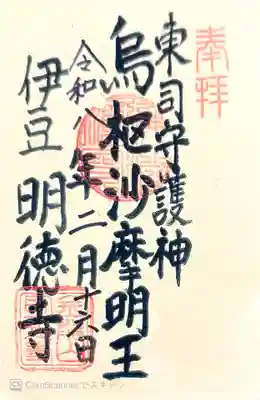 奉拝
東司守護神
烏枢沙摩明王
令和八年二月十六日
伊豆 明徳寺
CamScannerでスキャン